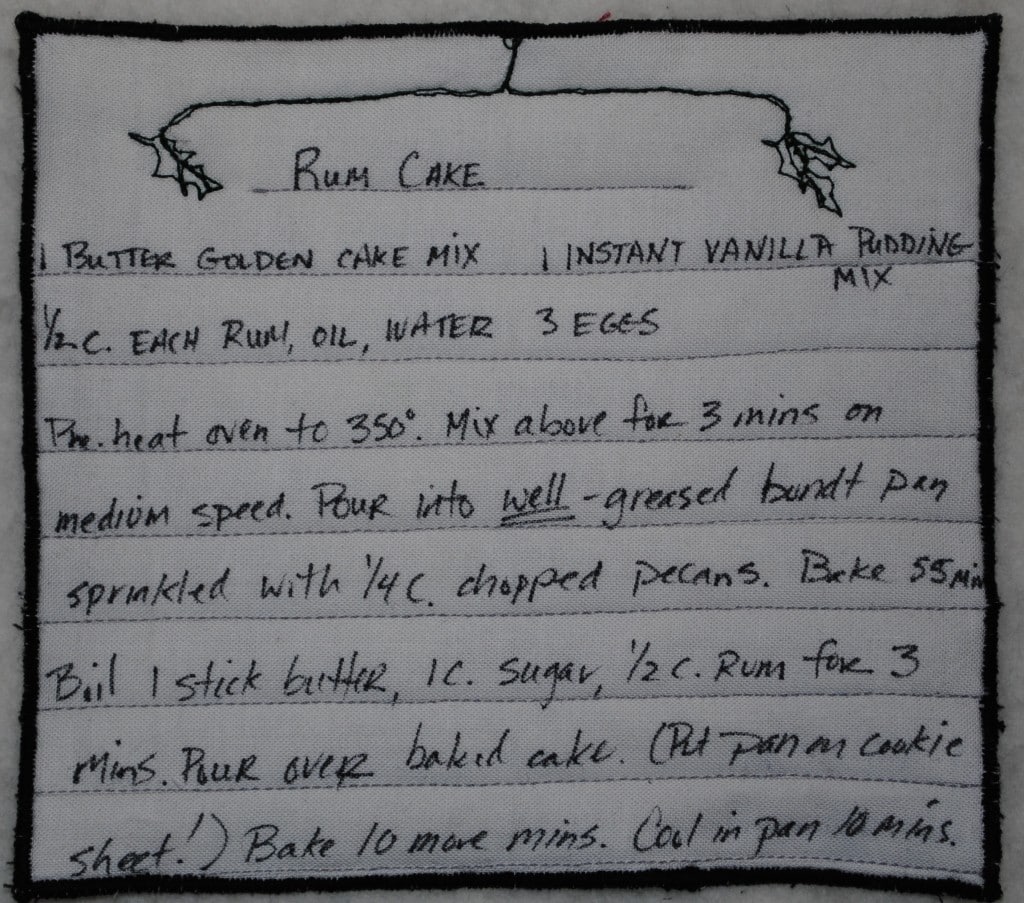 RUM CAKE
1 BUTTER GOLDEN CAKE MIX 1 INSTANT VANILLA PUDDING
MIX
1/2 C. EACH RUM, OIL, WATER 3 EGGS
Pre-heat oven to 350°. Mix above for 3 mins on
medium speed. Pour into well-greased bundt pan
sprinkled with 1/4 C. chopped pecans. Bake 55 min
Boil 1 stick butter, 1 C. sugar, 1/2 C. Rum for 3
mins. Pour over baked cake. (Put pan on cookie
sheet!) Bake 10 more mins. Cool in pan 10 mins.